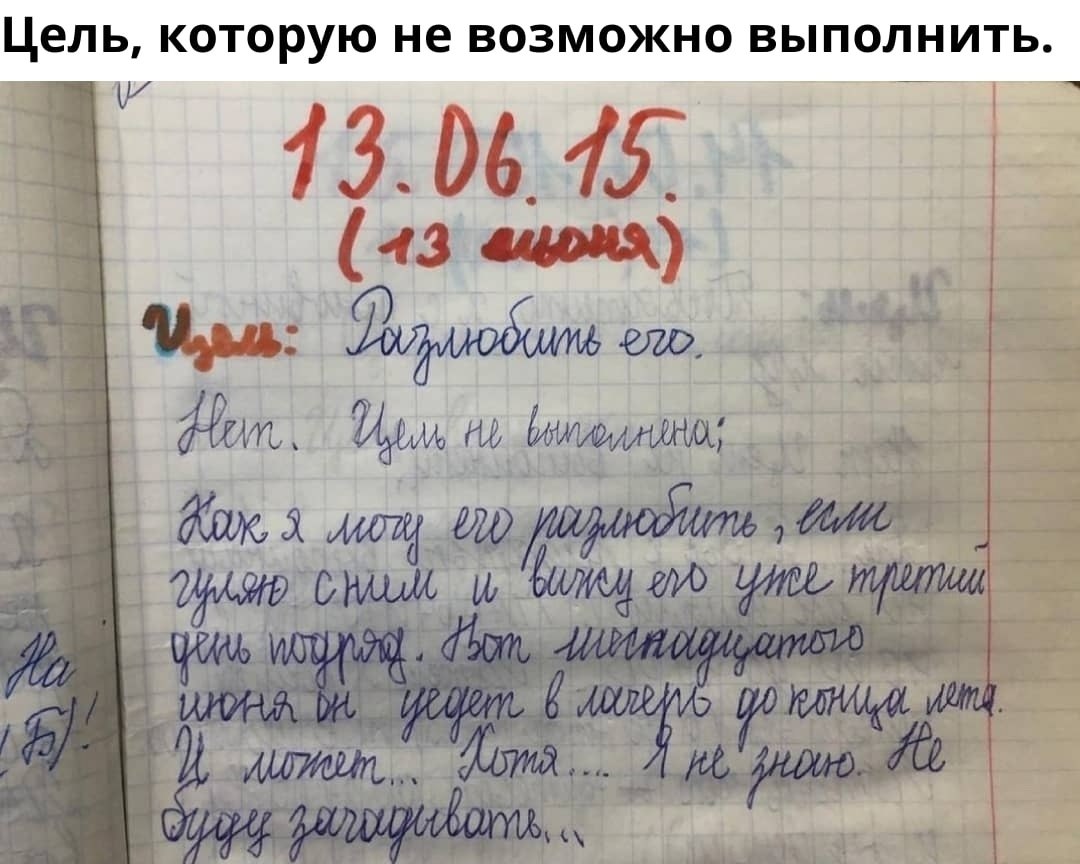 Цель, которую не возможно выполнить.
13.06.15.
(13 июня)
Цель: Разлюбить его.
Нет. Цель не выполнена;
Как я могу его разлюбить, если
гуляю с ним и вижу его уже третий
день подряд. Вот шестнадцатого
июня он уедет в лагерь до конца лета.
И может... Хотя.... Я не знаю. Не
буду загадывать...
На
Б)!